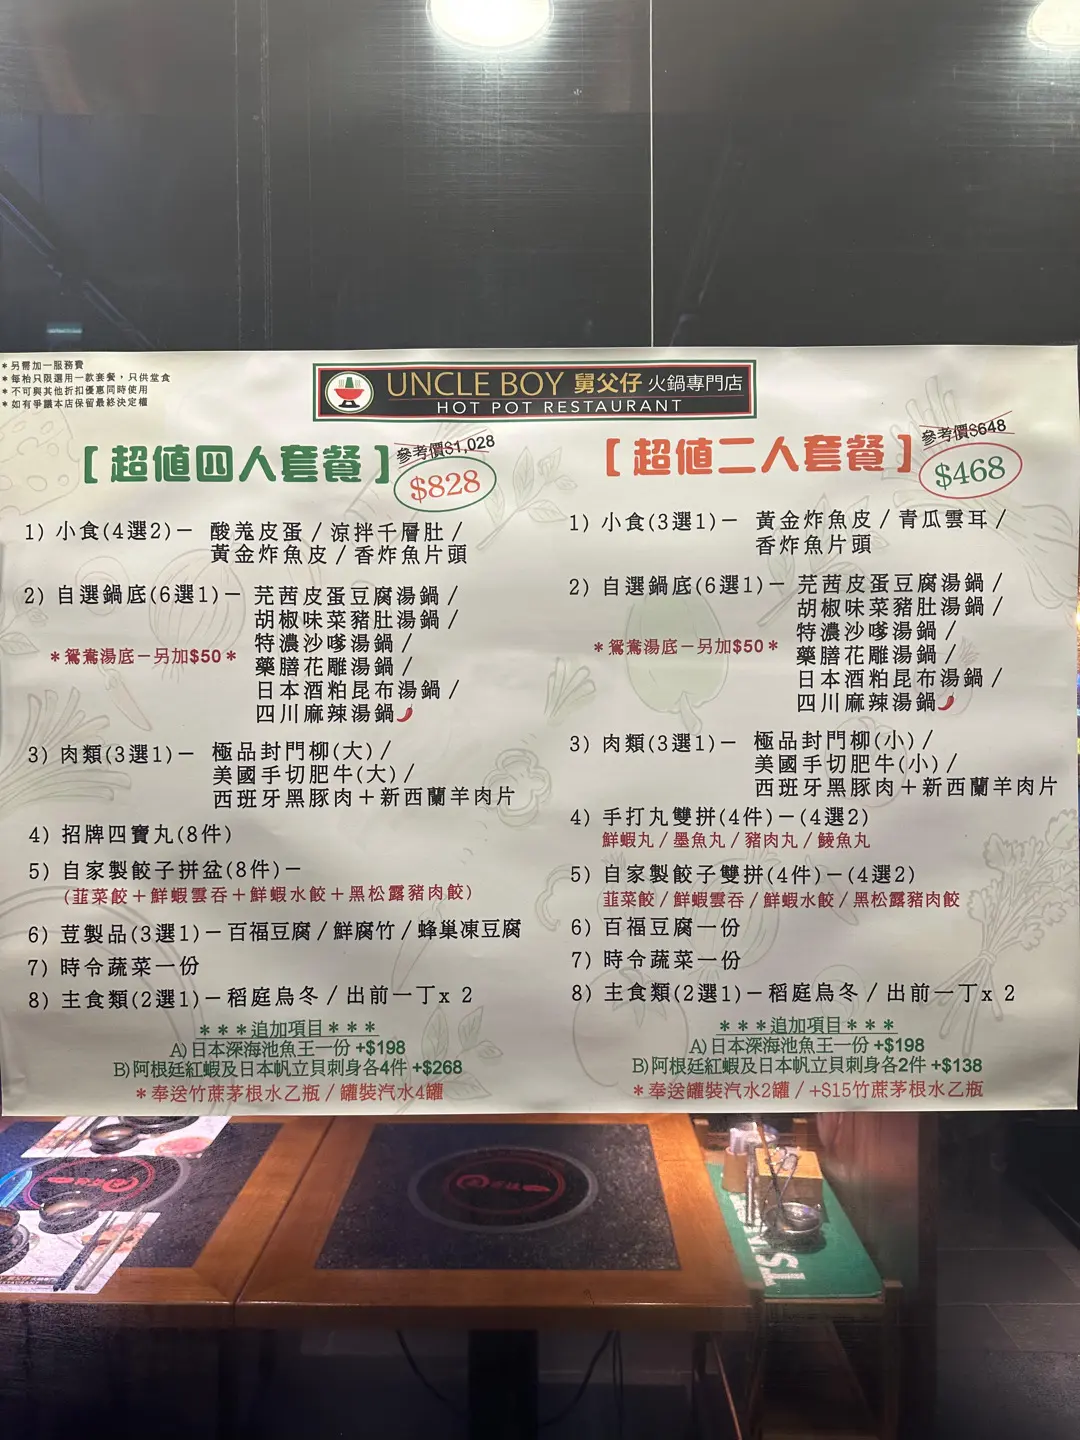 *另需加一服務費
*每枱只限選用一款套餐，只供堂食
*不可與其他折扣優惠同時使用
*如有爭議本店保留最終決定權
UNCLE BOY 舅父仔 火鍋專門店
HOT POT RESTAURANT
【超值四人套餐】
參考價$1,028
$828
1) 小食(4選2)－ 酸羗皮蛋/涼拌千層肚/
黃金炸魚皮/香炸魚片頭
2) 自選鍋底(6選1)－ 芫茜皮蛋豆腐湯鍋/
胡椒味菜豬肚湯鍋/
特濃沙嗲湯鍋/
*鴛鴦湯底－另加$50*
藥膳花雕湯鍋/
日本酒粕昆布湯鍋/
四川麻辣湯鍋
3) 肉類(3選1)－ 極品封門柳(大)/
美國手切肥牛(大)/
西班牙黑豚肉＋新西蘭羊肉片
4) 招牌四寶丸(8件)
5) 自家製餃子拼盆(8件)－
(韮菜餃＋鮮蝦雲吞＋鮮蝦水餃＋黑松露豬肉餃)
6) 荳製品(3選1)－百福豆腐/鮮腐竹/蜂巢凍豆腐
7) 時令蔬菜一份
8) 主食類(2選1)－稻庭烏冬/出前一丁x 2
***追加項目***
A)日本深海池魚王一份 +$198
B)阿根廷紅蝦及日本帆立貝刺身各4件 +$268
*奉送竹蔗茅根水乙瓶/罐裝汽水4罐
【超值二人套餐】
參考價$648
$468
1) 小食(3選1)－ 黃金炸魚皮/青瓜雲耳/
香炸魚片頭
2) 自選鍋底(6選1)－ 芫茜皮蛋豆腐湯鍋/
胡椒味菜豬肚湯鍋/
特濃沙嗲湯鍋/
*鴛鴦湯底－另加$50*
藥膳花雕湯鍋/
日本酒粕昆布湯鍋/
四川麻辣湯鍋
3) 肉類(3選1)－ 極品封門柳(小)/
美國手切肥牛(小)/
西班牙黑豚肉＋新西蘭羊肉片
4) 手打丸雙拼(4件)－(4選2)
鮮蝦丸/墨魚丸/豬肉丸/鯪魚丸
5) 自家製餃子雙拼(4件)－(4選2)
韮菜餃/鮮蝦雲吞/鮮蝦水餃/黑松露豬肉餃
6) 百福豆腐一份
7) 時令蔬菜一份
8) 主食類(2選1)－稻庭烏冬/出前一丁x 2
***追加項目***
A)日本深海池魚王一份 +$198
B)阿根廷紅蝦及日本帆立貝刺身各2件 +$138
*奉送罐裝汽水2罐/+$15竹蔗茅根水乙瓶